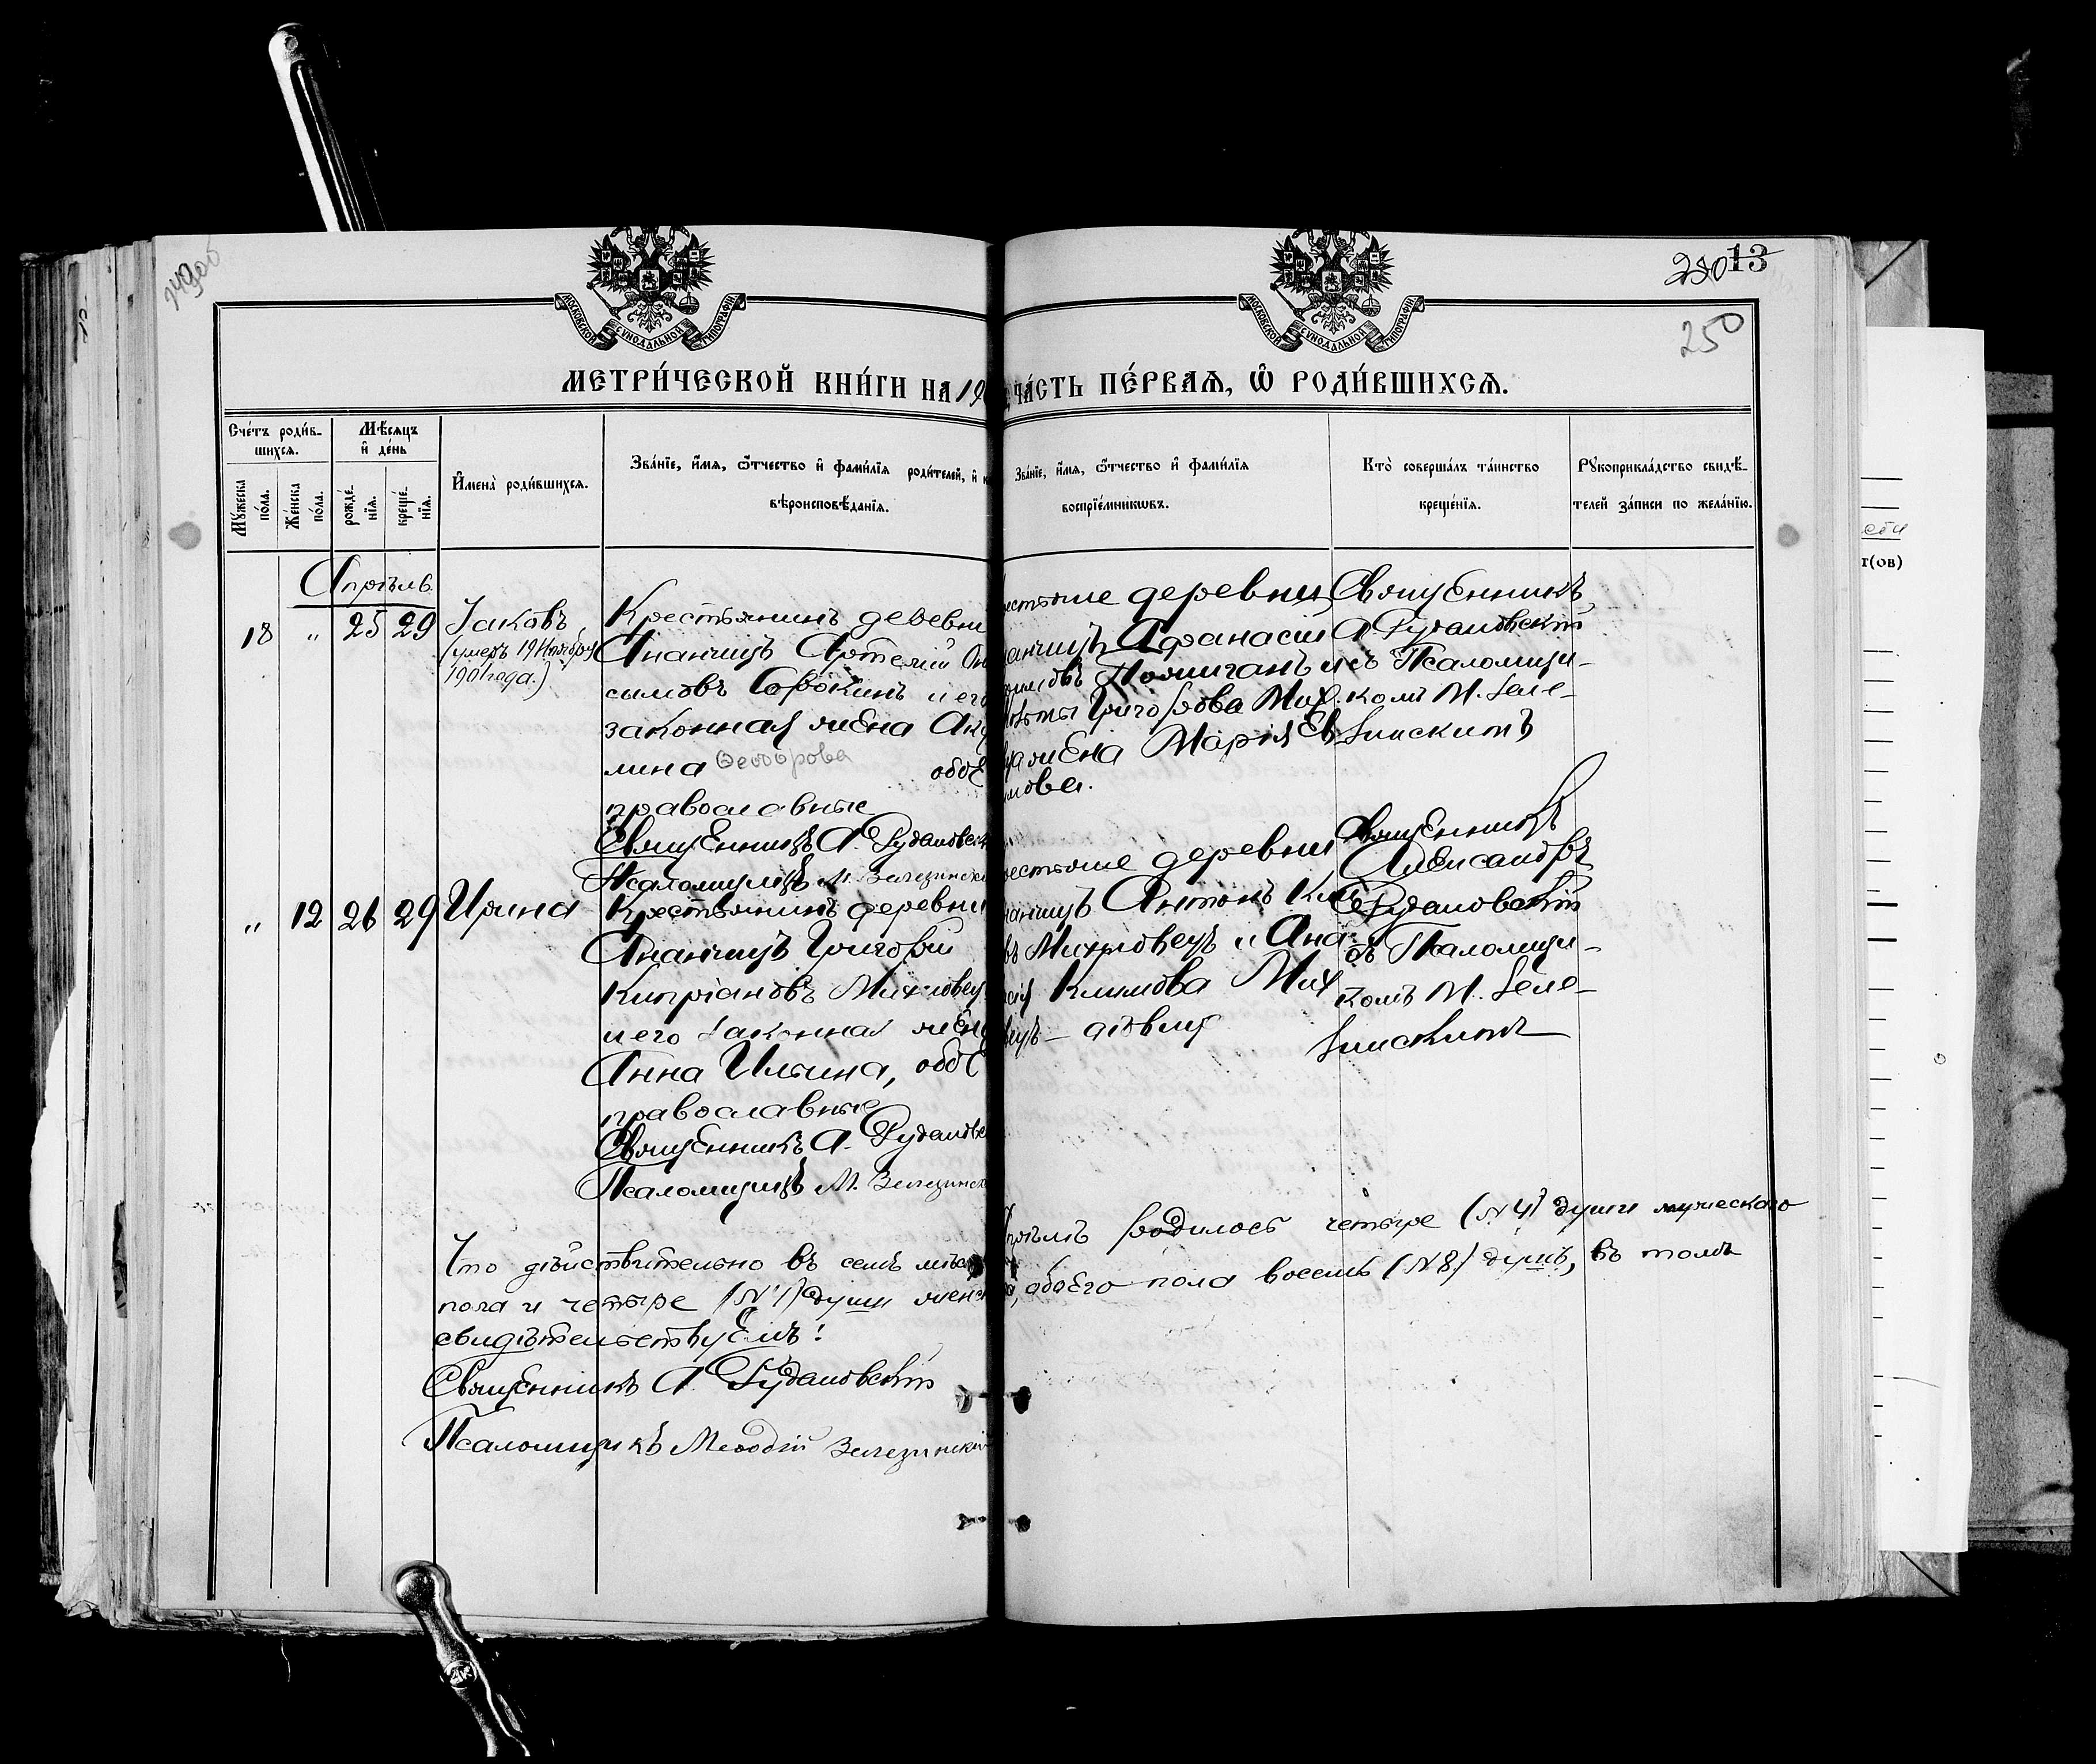 13
250
МОСКОВСКОЙ СѴНОДАЛЬНОЙ ТИПОГРАФІИ
МОСКОВСКОЙ СѴНОДАЛЬНОЙ ТИПОГРАФІИ
МЕТРИ́ЧЕСКОЙ КНИ́ГИ НА 19
ЧА́СТЬ ПЕ́РВАѦ, Ѽ РОДИ́ВШИХСѦ.
Сче́тъ роди́в-
шихсѧ.
Мѣ́сѧцъ
и҆ де́нь
Мꙋ́жеска по́ла.
Же́нска по́ла.
рожде́-нїѧ.
креще́-нїѧ.
И҆мена̀ роди́вшихсѧ.
Зва́нїе, и҆́мѧ, ѻ҆́тчество и҆ фами́лїѧ роди́телей, и҆
вѣроисповѣ́данїѧ.
Зва́нїе, и҆́мѧ, ѻ҆́тчество и҆ фами́лїѧ
воспрїе́мникѡвъ.
Кто̀ соверша́лъ та́инство
креще́нїѧ.
Рꙋкоприкла́дство свидѣ́-
телей за́писи по жела́нїю.
Апрѣль
18 " 25 29 Іаковъ
(умеръ 19 Ноября
1901 года.)
Крестьянинъ деревни
Ананчицъ Артемій Они
симовъ Сорокинъ и его
законная жена Аку
лина Ѳеодорова обое
православные
Священникъ А. Рудаковск
Псаломщикъ М. Зелезинскі
естьяне деревни
анчицъ Афанасій
имовъ
Григорова Мих.
жена Марія Ев
мова.
Священникъ
А Рудаковскій
съ Псаломщи-
комъ М. Зеле-
зинскимъ
" 12 26 29 Ирина
Крестьянинъ деревни
Ананчицъ Григорій
Кипріановъ Михновец
и его законная жена
Анна Ильина, обое
православные
Священникъ А. Рудаковс
Псаломщикъ М. Зелезинск
естьяне деревни
нанчицъ Антонъ Кли
въ Михновецъ и Ана
сія Климова Мих
вецъ - дѣвица
Священникъ
Александръ
Рудаковскій
съ Псаломщи-
комъ М. Зеле-
зинскимъ
Что дѣйствительно въ семъ мѣсяц
прѣлѣ родилось четыре (№ 4) души мужескаго
пола и четыре (№ 4) души женск
, обоего пола восемь (№ 8) душъ, въ томъ
свидѣтельствуемъ:
Священникъ А Рудаковскій
Псаломщикъ Меѳодій Зелезинскій
ети
т(ов)